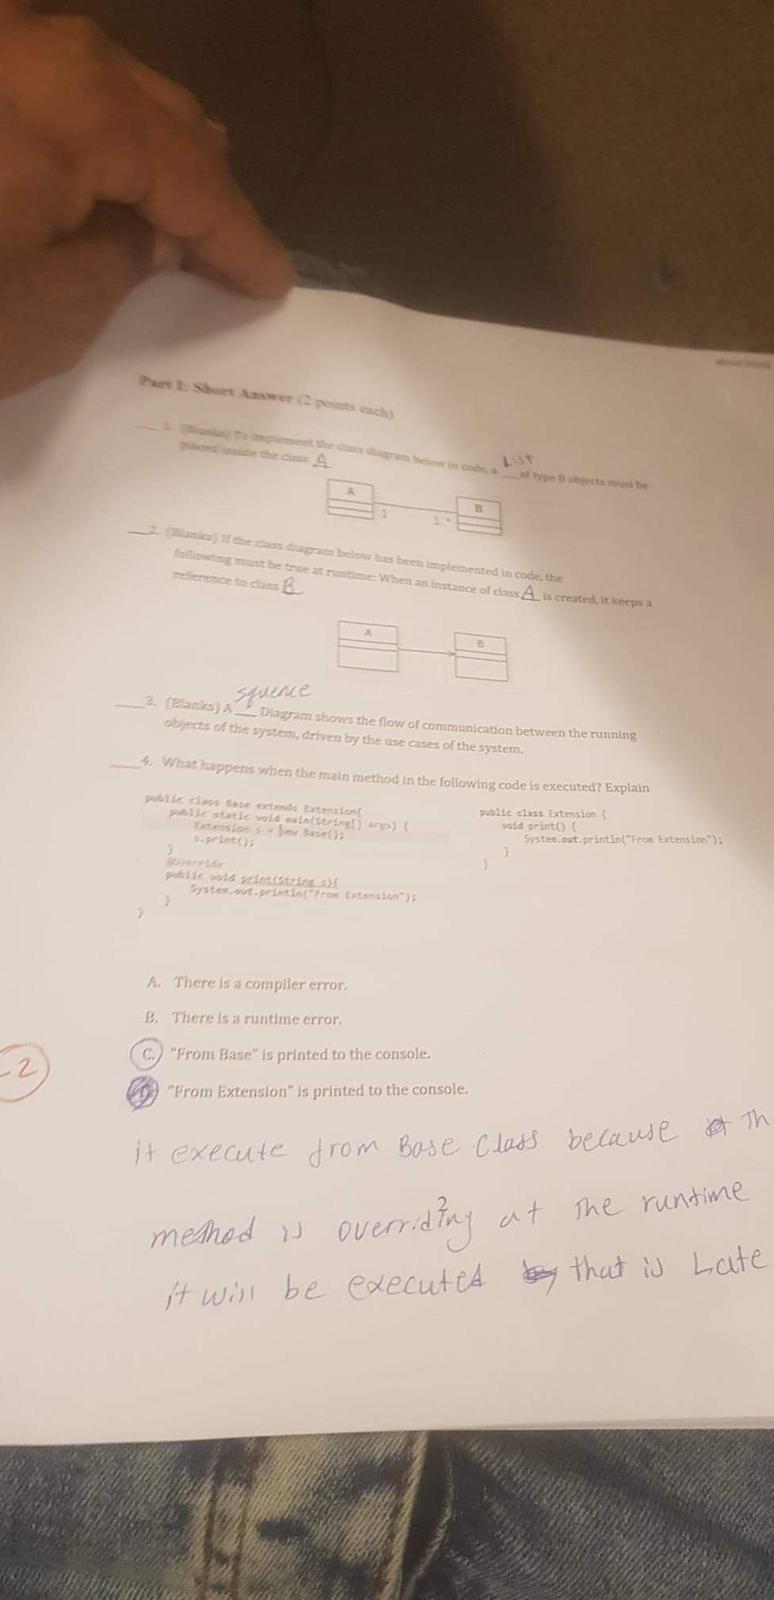 Part I: Short Answer (2 points each)
1. (Blanks) To implement the class diagram below in code, a List of type B objects must be
placed inside the class A
A
B
1
1..*
2. (Blanks) If the class diagram below has been implemented in code, the
following must be true at runtime: When an instance of class A is created, it keeps a
reference to class B
A
B
squence
3. (Blanks) A ___ Diagram shows the flow of communication between the running
objects of the system, driven by the use cases of the system.
4. What happens when the main method in the following code is executed? Explain
public class Base extends Extension{
public static void main(String[] args) {
Extension s = new Base();
s.print();
}
@Override
public void print(String s){
System.out.println("From Extension");
}
}
public class Extension {
void print() {
System.out.println("From Extension");
}
}
A. There is a compiler error.
B. There is a runtime error.
C. "From Base" is printed to the console.
"From Extension" is printed to the console.
-2
it execute from Base Class because Th
method is overriding at The runtime
it will be executed that is Late